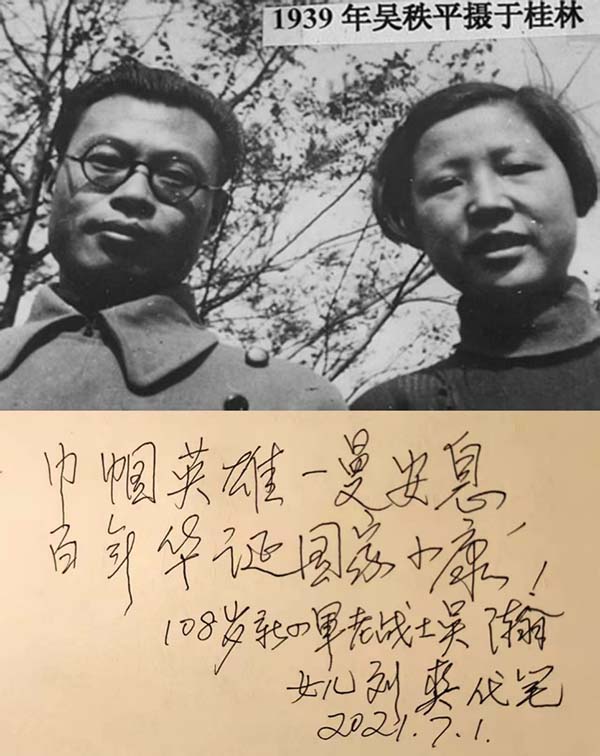 1939 年吴秩平摄于桂林
巾帼英雄一曼安息
百年华诞国家小康!
108岁新四军老战士吴瀚
女儿刘爽代笔
2021.7.1.